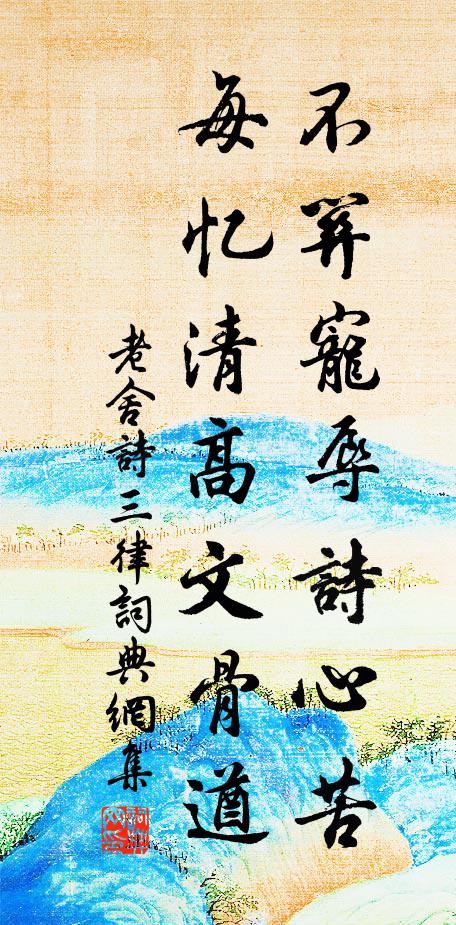 不羿寵辱詩心苦
每忆清高文骨遒
老舍詩三律詞典網集